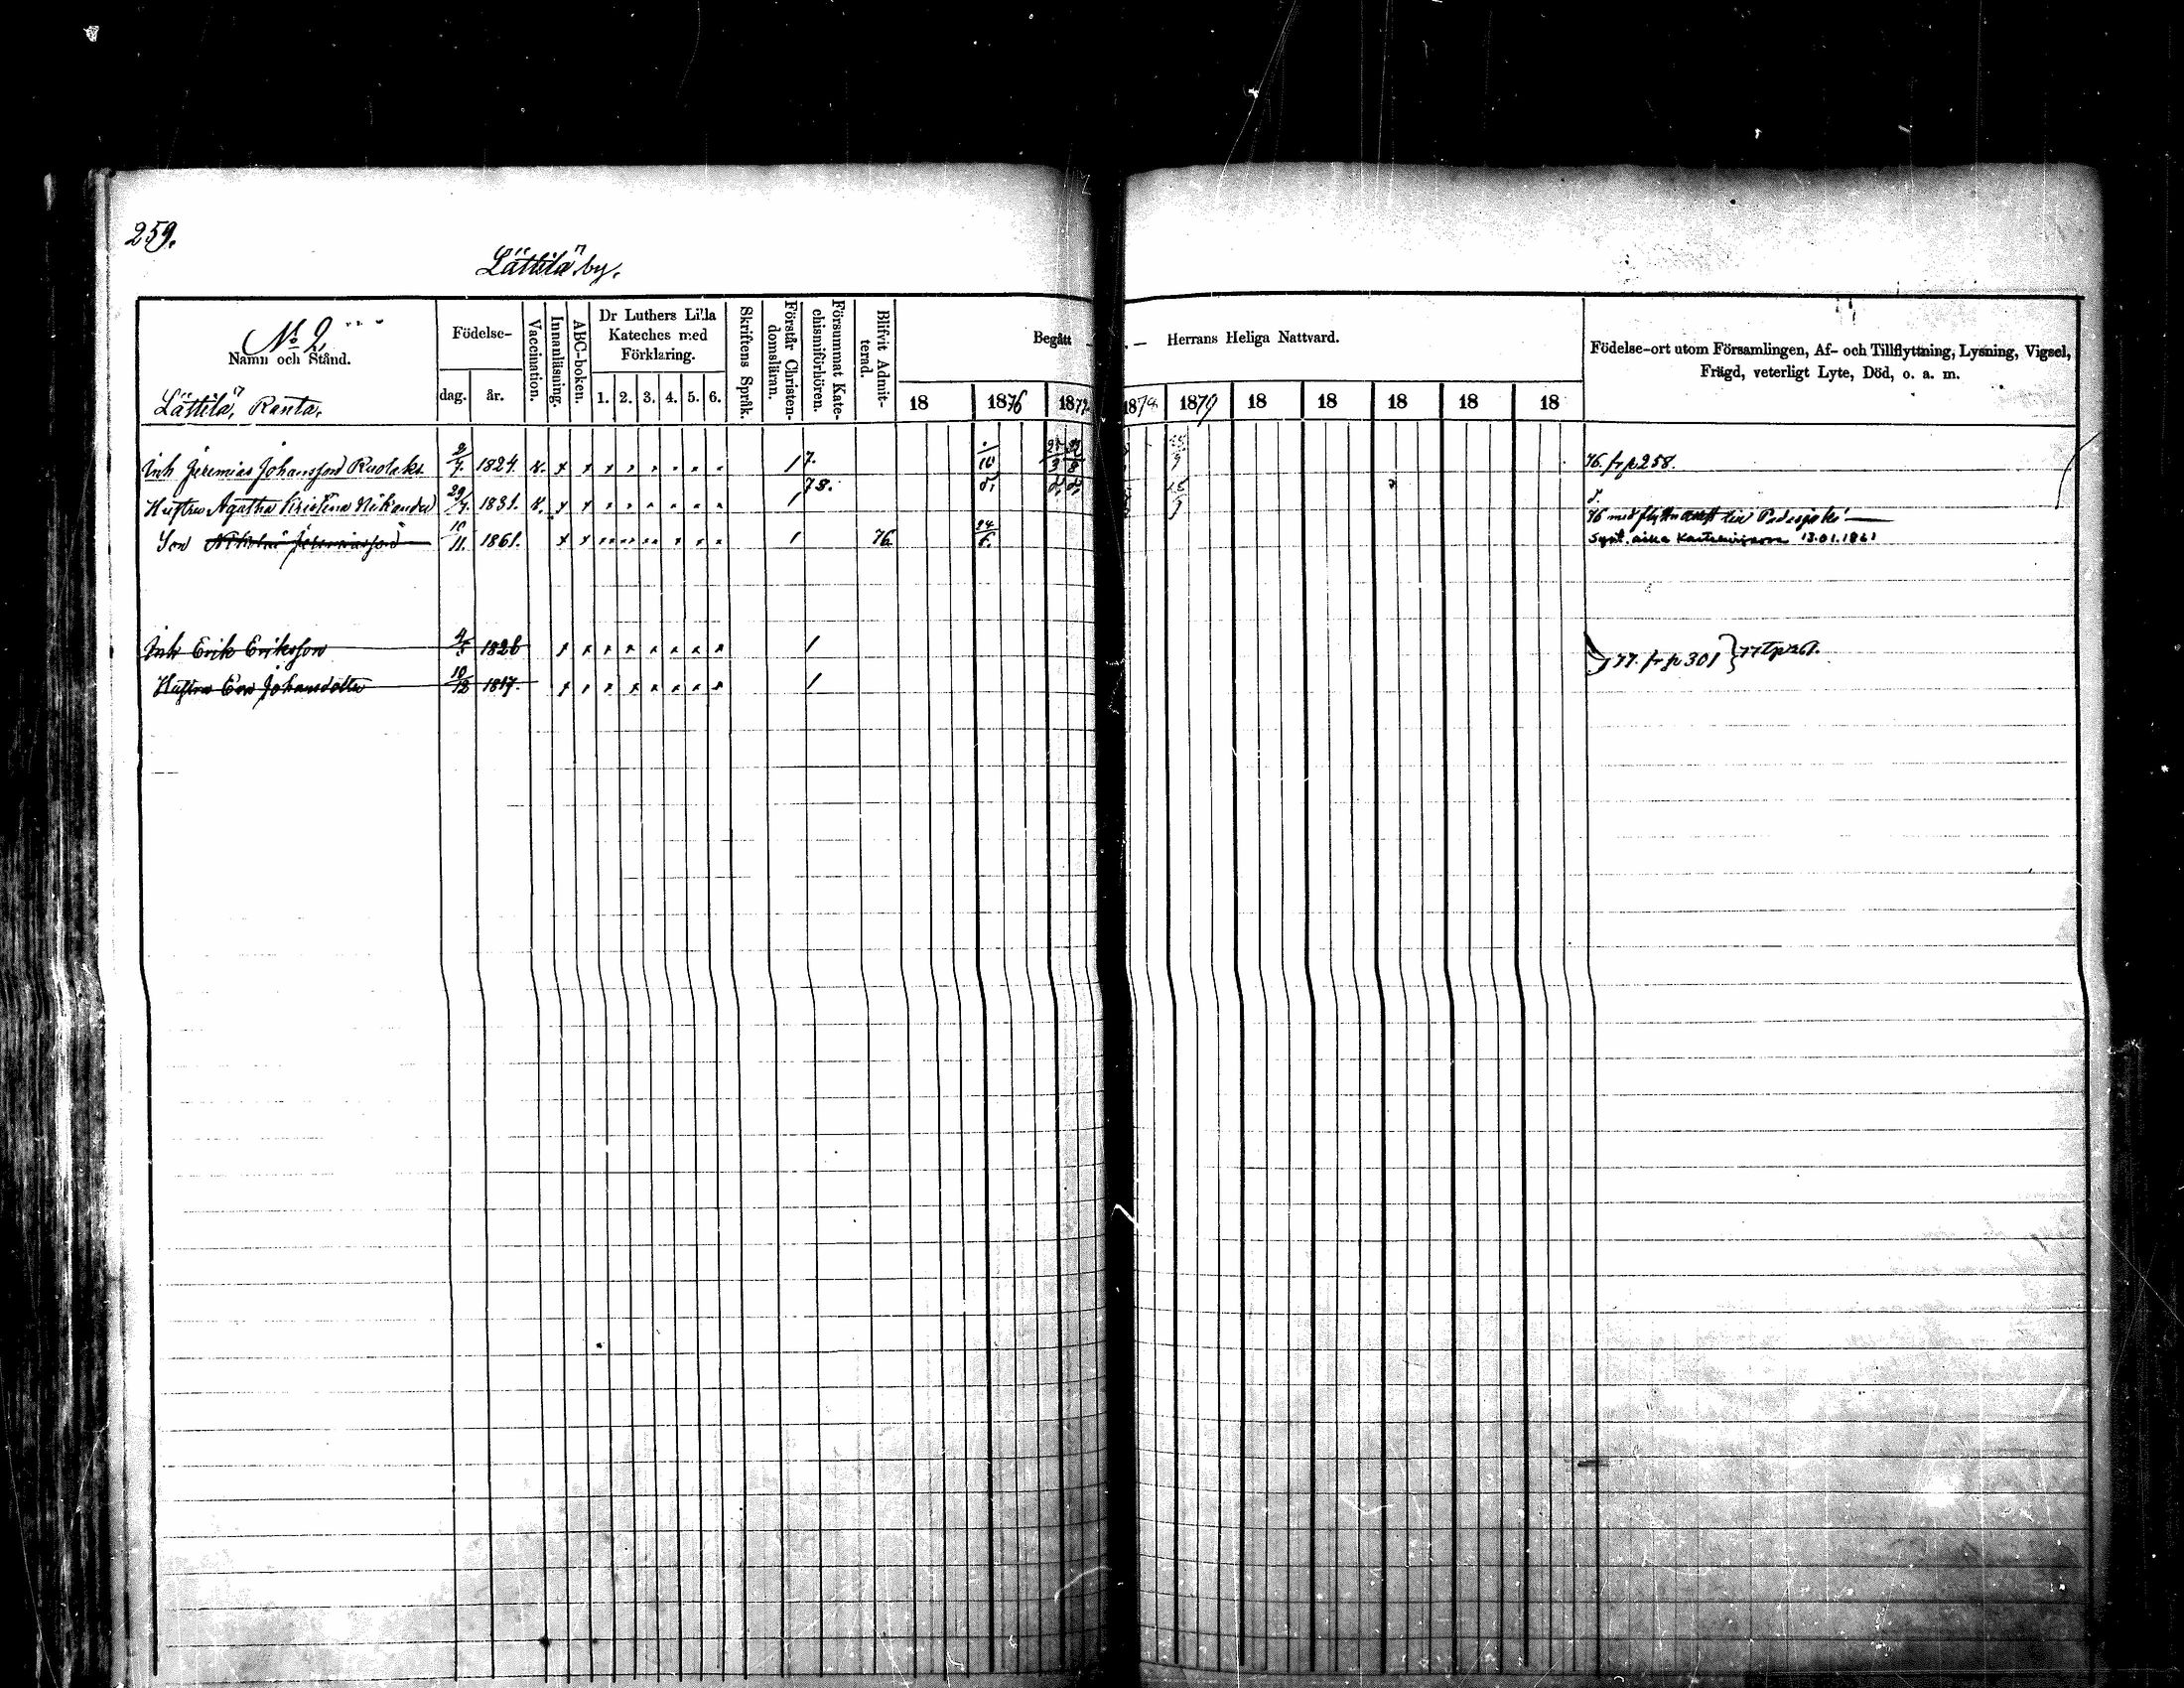 259.
Lättilä by.
No 2.
Namn och Stånd.
Lättilä, Ranta.
Födelse-
dag. år.
Vaccination.
Innanläsning.
ABC-boken.
Dr Luthers Lilla Kateches med Förklaring.
1. 2. 3. 4. 5. 6.
Skriftens Språk.
Förstår Christen-domsläran.
Försummat Kate-chismiförhören.
Blifvit Admit-terad.
Begått — — Herrans Heliga Nattvard.
18 1876 1877 1878 1879 18 18 18 18 18
Födelse-ort utom Församlingen, Af- och Tillflyttning, Lysning, Vigsel,
Frägd, veterligt Lyte, Död, o. a. m.
Inh Jeremias Johansson 2/7. 1824. v. 1 7. /10 25/3 8 9 76. fr p 258.
Hustru Agatha Kristina 29/7. 1831. v. 1 78. d. d. d. d.
Son Nikolai Jeremiasson 10/11. 1861. 1 76. 24/6. 76 med flyttn
Synt. aika 13.01.1861
Inh Erik Eriksson 1826 1
77. fr p 301
Hustru Eva Johansdotter 10/12 1817. 1